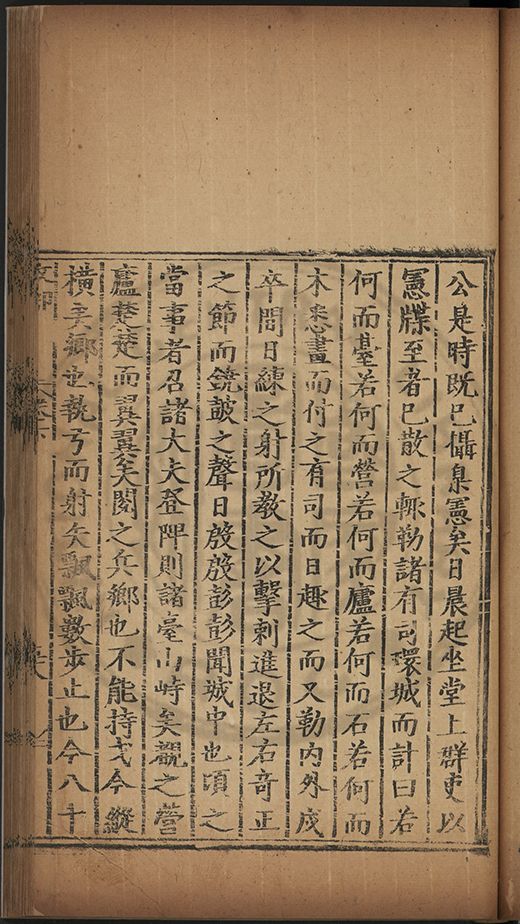 公是時既已懾臬憲矣日晨起坐堂上群吏以
憲牒至者已散之輙勒諸有司環城而計曰若
何而臺若何而營若何而廬若何而石若何而
木悉畫而付之有司而日趣之而又勒內外戍
卒間日練之射所教之以擊刺進退左右竒正
之節而鐃皷之聲日殷殷彭彭聞城中也頃之
當事者召諸大夫登陴則諸臺山峙矣觀之營
廬楚楚而翼翼矣閱之兵鄉也不能持戈今縱
橫矣鄉也執弓而射矢飄飄數步止也今八十